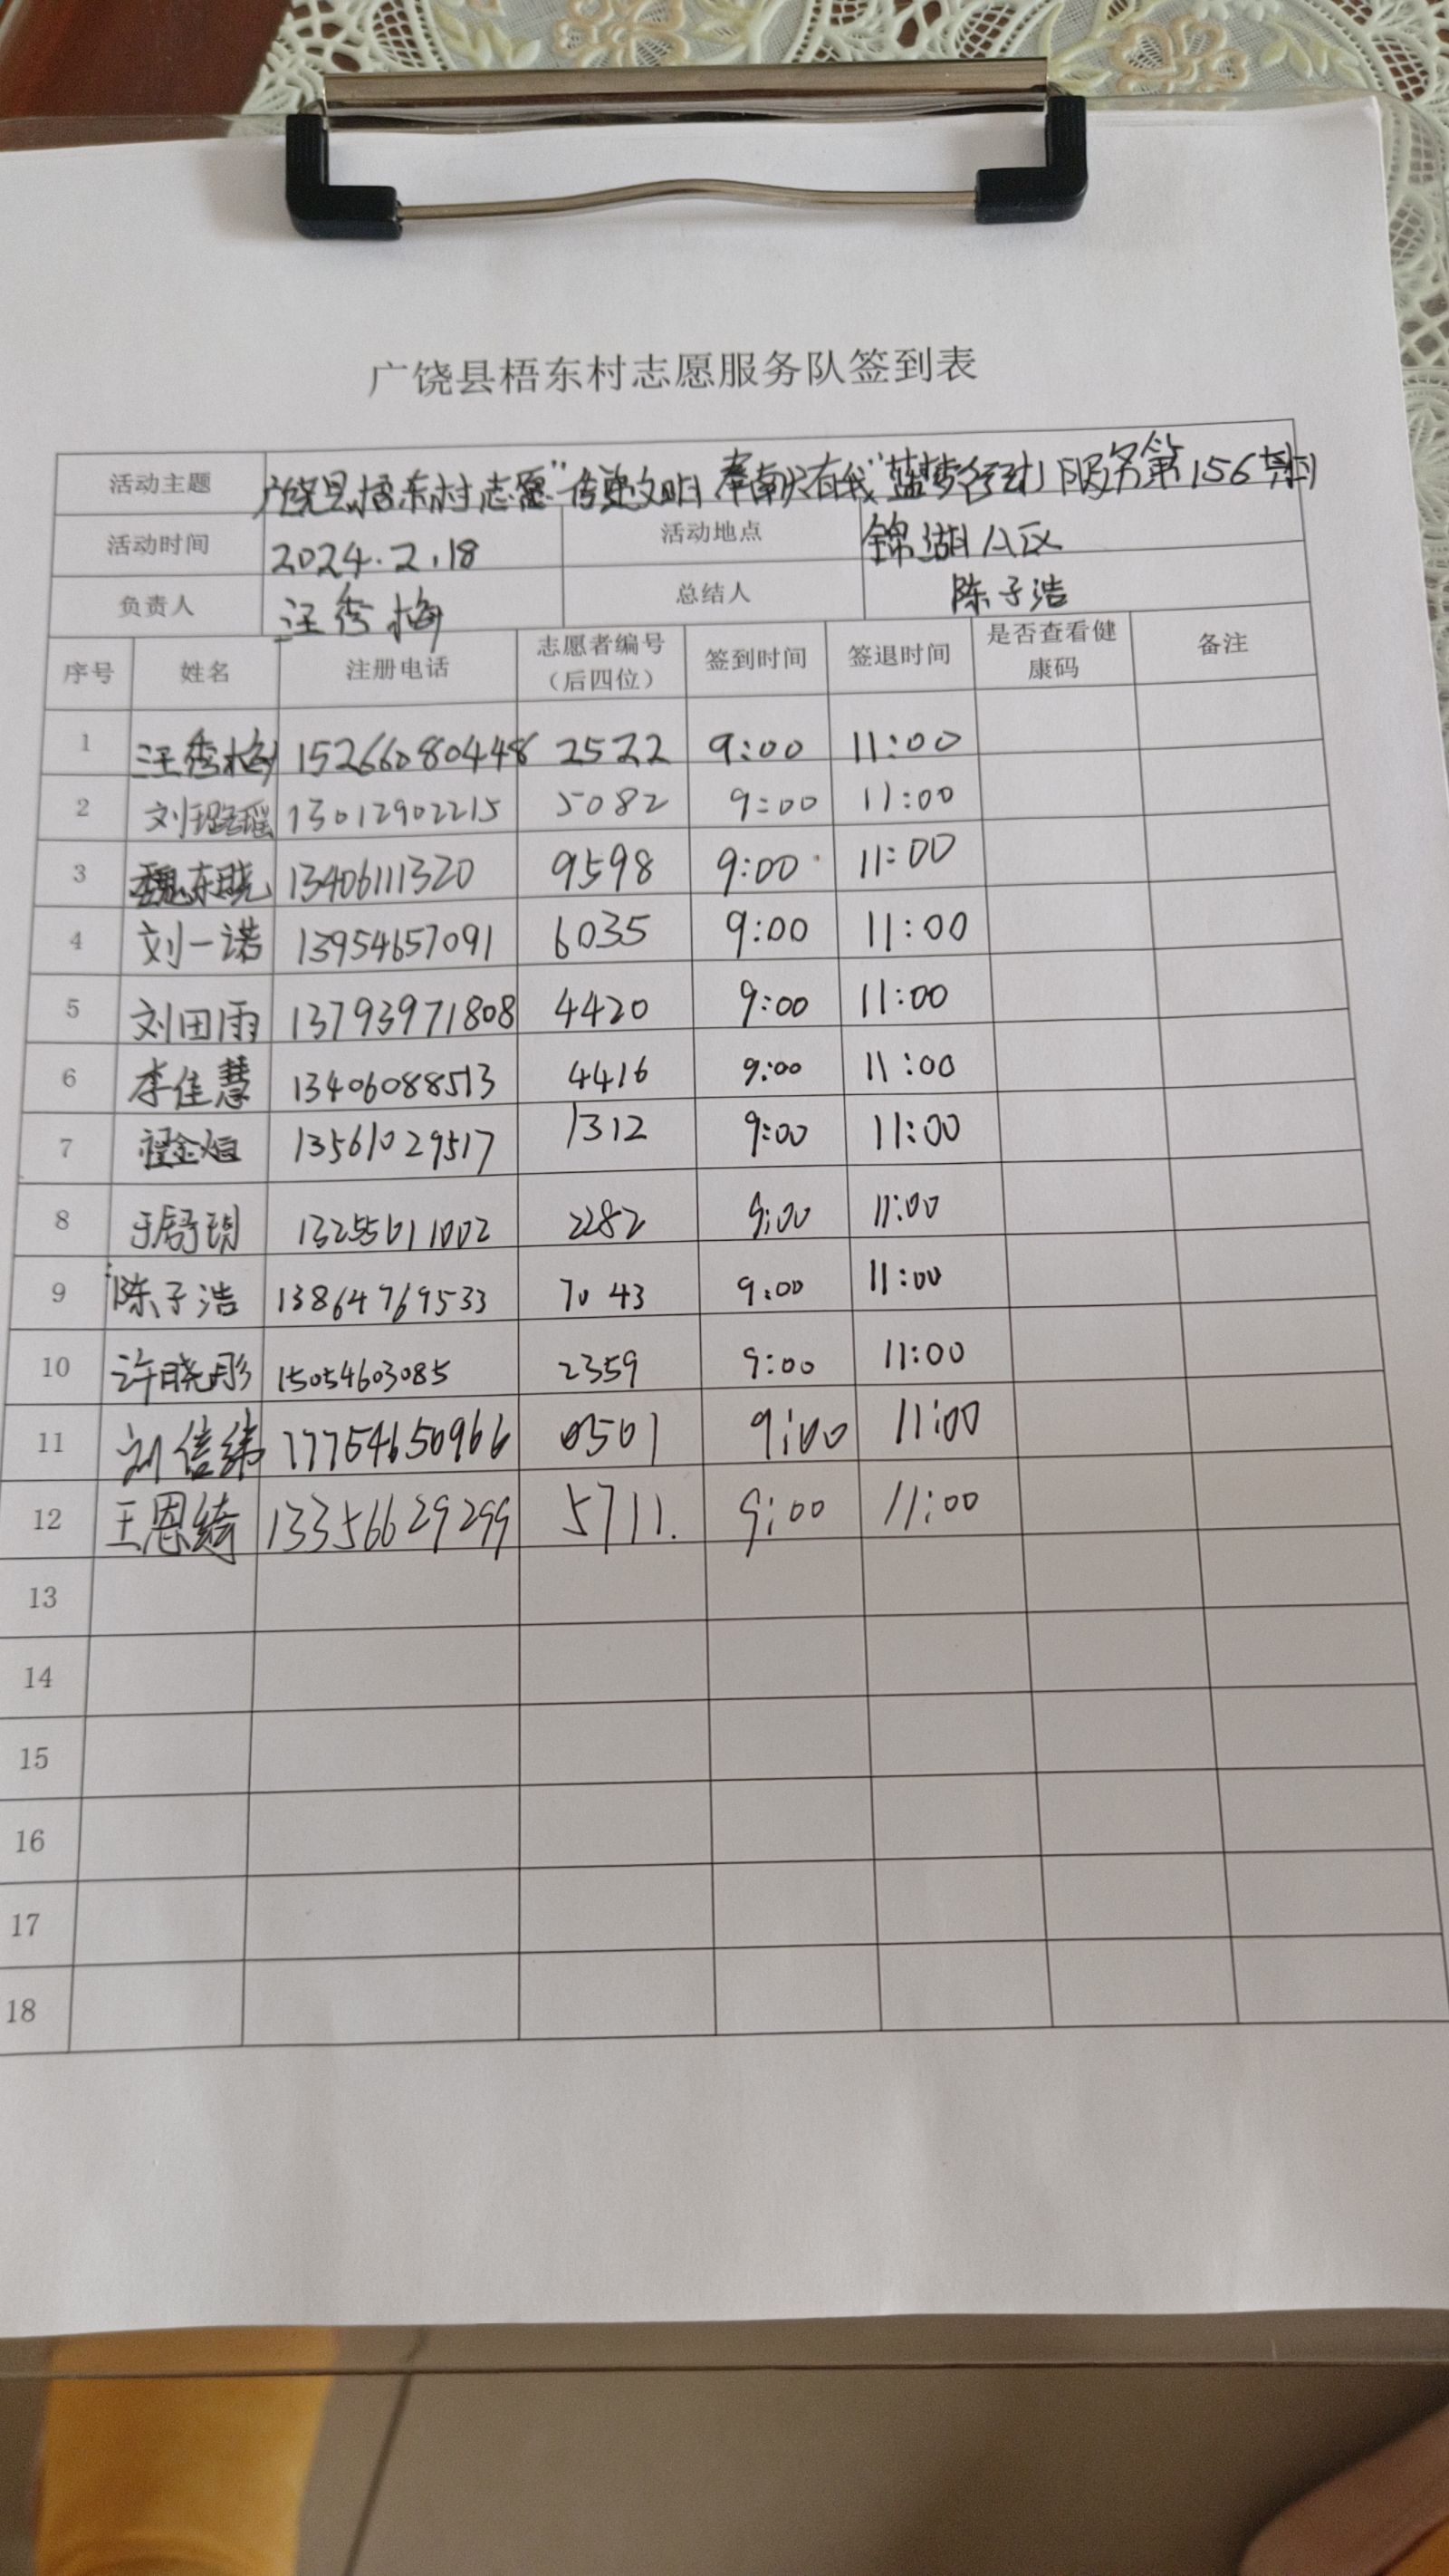 广饶县梧东村志愿服务队签到表
活动主题 广饶县梧东村志愿"传递文明 奉献有我"蓝梦行动服务第156期
活动时间 2024.2.18 活动地点 锦湖小区
负责人 汪秀梅 总结人 陈子浩
序号 姓名 注册电话 志愿者编号（后四位） 签到时间 签退时间 是否查看健康码 备注
1 汪秀梅 15266080448 2522 9:00 11:00
2 刘璐瑶 13012902215 5082 9:00 11:00
3 魏东晓 13406111320 9598 9:00 11:00
4 刘一诺 13954657091 6035 9:00 11:00
5 刘田雨 13793971808 4420 9:00 11:00
6 李佳慧 13406088513 4416 9:00 11:00
7 13561029517 1312 9:00 11:00
8 于舒玥 13255611002 2282 9:00 11:00
9 陈子浩 13864769533 7043 9:00 11:00
10 许晓彤 15054603085 2359 9:00 11:00
11 刘信纬 17754650966 0501 9:00 11:00
12 王恩绮 13356629299 5711. 9:00 11:00
13
14
15
16
17
18